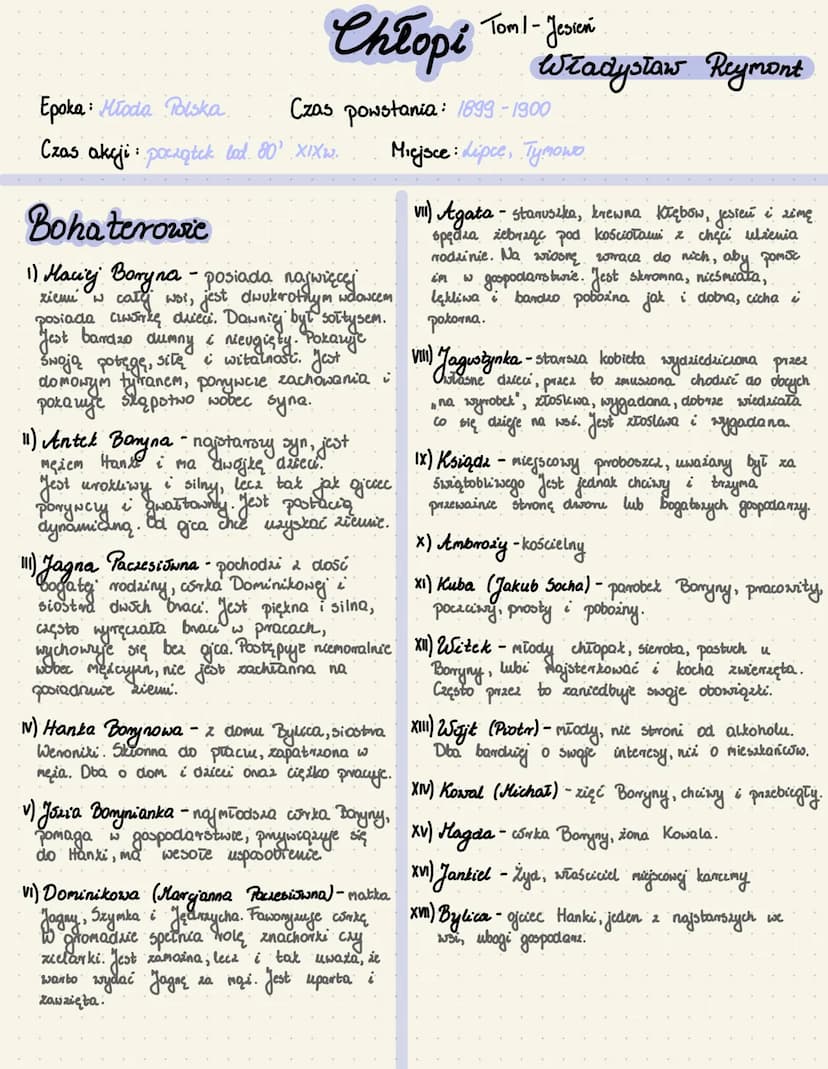 Chłopi Tom I - Jesień
Władysław Reymont
Epoka: Młoda Polska Czas powstania: 1899-1900
Czas akcji: początek lat 80' XIXw. Miejsce: Lipce, Tymowo
Bohaterowie
I) Maciej Boryna - posiada najwięcej
ziemi w całej wsi, jest dwukrotnym wdowcem
posiada czwórkę dzieci. Dawniej był sołtysem.
Jest bardzo dumny i nieugięty. Pokazuje
swoją potęgę, siłę i witalność. Jest
domowym tyranem, porywcze zachowania i
pokazuje skąpstwo wobec syna.
II) Antek Boryna - najstarszy syn, jest
mężem Hanki i ma dwójkę dzieci.
Jest urokliwy i silny, lecz tak jak ojciec
porywczy i gwałtowny. Jest postacią
dynamiczną. Od ojca chce uzyskać ziemie.
III) Jagna Paczesiówna - pochodzi z dość
bogatej rodziny, córka Dominikowej i
siostra dwóch braci. Jest piękna i silna,
często wyręczała braci w pracach,
wychowuje się bez ojca. Postępuje niemoralnie
wobec mężczyzn, nie jest zachłanna na
posiadanie ziemi.
IV) Hanka Borynowa - z domu Bylica, siostra
Weroniki. Skłonna do płaczu, zapatrzona w
męża. Dba o dom i dzieci oraz ciężko pracuje.
V) Józia Borynianka - najmłodsza córka Boryny,
pomaga w gospodarstwie, przywiązuje się
do Hanki, ma wesołe usposobienie
VI) Dominikowa (Marcjanna Paczesiówna) - matka
Jagny, Szymka i Jędrzycha. Faworyzuje córkę
W gromadzie spełnia rolę znachorki czy
zielarki. Jest zamożna, lecz i tak uważa, że
warto wydać Jagnę za mąż. Jest uparta i
zawzięta.
VII) Agata - staruszka, krewna Kłębów, jesień i zimę
spędza żebrząc pod kościołami z chęci ulżenia
rodzinie. Na wiosnę wraca do nich, aby pomóc
im w gospodarstwie. Jest skromna, nieśmiała,
lękliwa i bardzo pobożna jak i dobra, cicha i
pokorna.
VIII) Jagustynka - starsza kobieta wydziedziczona przez
własne dzieci, przez to zmuszona chodzić do obcych
„na wyrobek", złośliwa, wygadana, dobrze wiedziała
co się dzieje na wsi. Jest złośliwa i wygadana.
IX) Ksiądz - miejscowy proboszcz, uważany był za
świątobliwego Jest jednak chciwy i trzyma
przeważnie stronę dworu lub bogatszych gospodarzy.
X) Ambroży - kościelny
XI) Kuba (Jakub Socha) - parobek Boryny, pracowity,
poczciwy, prosty i pobożny.
XII) Witek - młody chłopak, sierota, pastuch u
Boryny, lubi majsterkować i kocha zwierzęta.
Często przez to zaniedbuje swoje obowiązki.
XIII) Wójt (Piotr) - młody, nie stroni od alkoholu.
Dba bardziej o swoje interesy, niż o mieszkańców.
XIV) Kowal (Michał) - zięć Boryny, chciwy i przebiegły.
XV) Magda - córka Boryny, żona Kowala.
XVI) Jankiel - Żyd, właściciel miejscowej karczmy
XVII) Bylica - ojciec Hanki, jeden z najstarszych we
wsi, ubogi gospodarz.